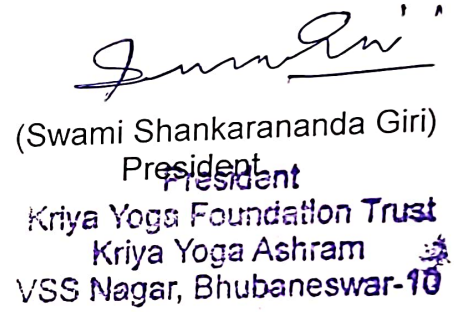 (Swami Shankarananda Giri)
President
President
Kriya Yoga Foundation Trust
Kriya Yoga Ashram
VSS Nagar, Bhubaneswar-10